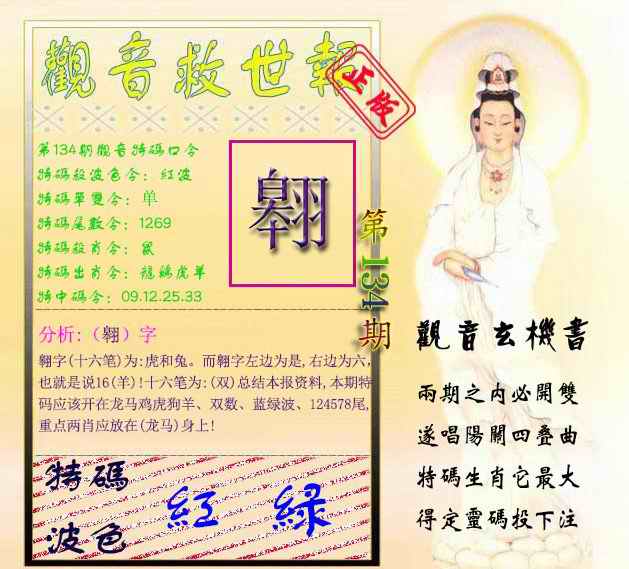 觀音救世報
正版
第134期觀音特碼口令
特碼殺波色令：紅波
特碼單雙令：单
特碼尾數令：1269
特碼殺肖令：鼠
特碼出肖令：龍鷄虎羊
特中碼令：09.12.25.33
翱
第134期
分析:（翱）字
翱字(十六笔)为:虎和兔。而翱字左边为是,右边为六,
也就是说16(羊)!十六笔为:(双)总结本报资料,本期特
码应该开在龙马鸡虎狗羊、双数、蓝绿波、124578尾,
重点两肖应放在(龙马)身上!
特碼
波色
紅 緑
觀音玄機書
兩期之内必開雙
遂唱陽關四叠曲
特碼生肖它最大
得定靈碼投下注